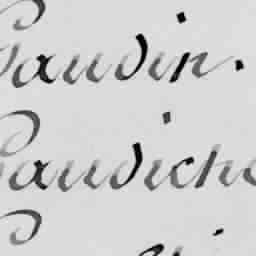 Gaudin.
Gaudiche